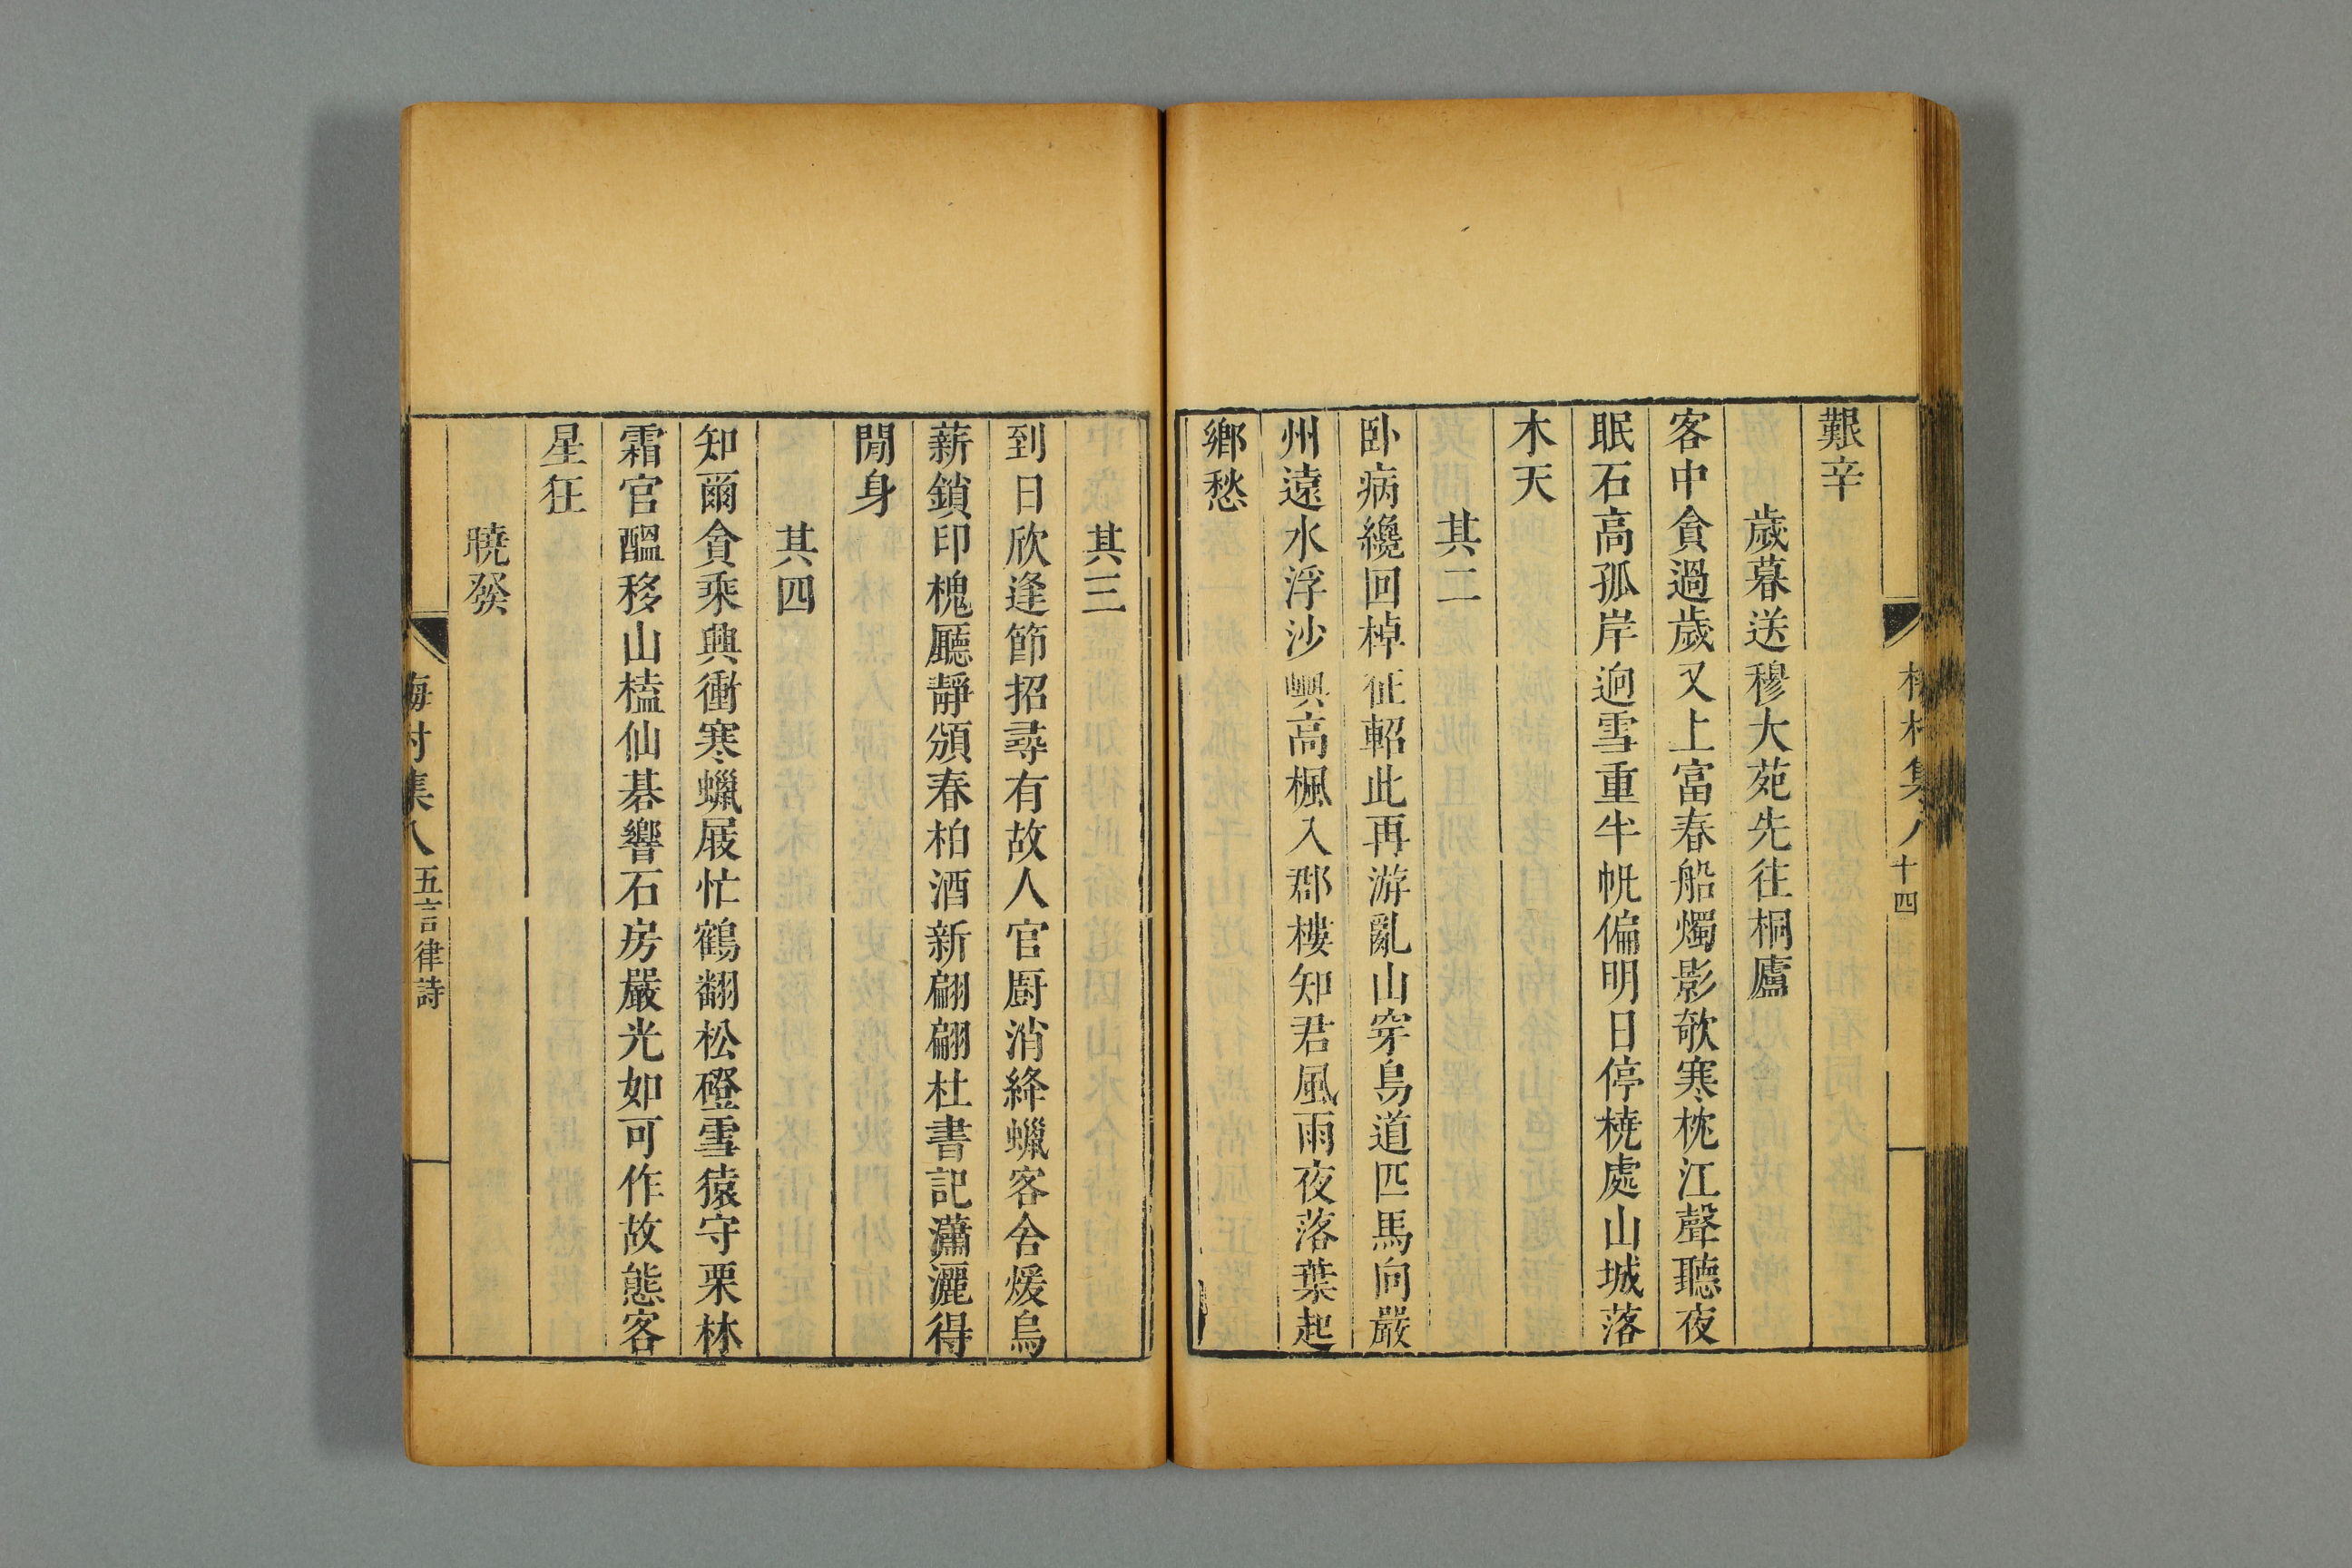 梅村集八
十四
艱辛
歲暮送穆大苑先往桐廬
客中貪過歲又上富春船燭影欹寒枕江聲聽夜
眠石高孤岸逈雪重半帆偏明日停橈處山城落
木天
其二
卧病纔回棹征軺此再游亂山穿鳥道匹馬向嚴
州遠水浮沙嶼高楓入郡樓知君風雨夜落葉起
鄉愁
其三
到日欣逢節招尋有故人官厨消絳蠟客舍煖烏
薪鎖印槐廳靜頒春柏酒新翩翩杜書記瀟灑得
閒身
其四
知爾貪乘興衝寒蠟屐忙鶴翻松磴雪猿守栗林
霜官醞移山榼仙碁響石房嚴光如可作故態客
星狂
曉發
梅村集八
五言律詩